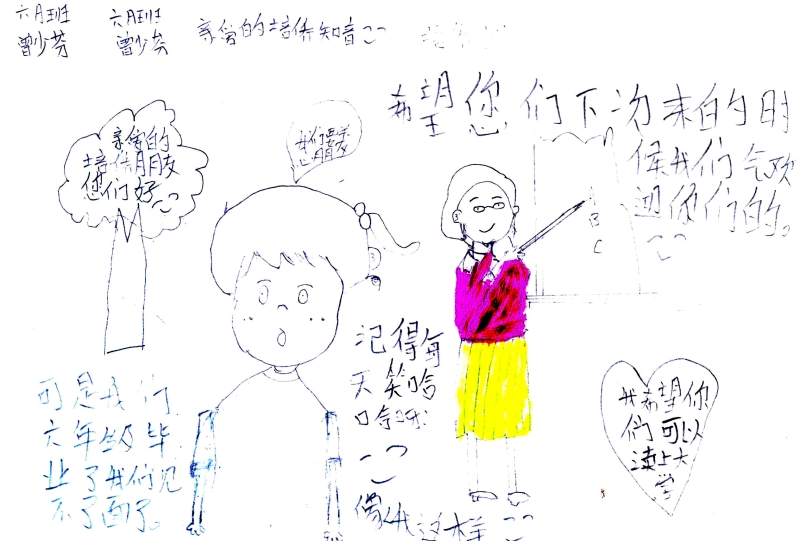 六月班 六月班
曾少芬 曾少芬
亲爱的培侨知音
亲爱的
培侨朋友
您们好
希望您们下次来的时
候我们气欢
迎你们的。
B
C
记得每
天笑哈
哈
像我这样
可是我们
六年级毕
业了我们见
不了面了。
我希望你
们可以
读上大
学